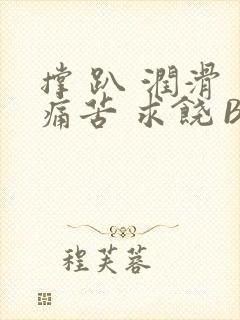 撑 趴 潤滑
痛苦 求饶 B
程芙蓉